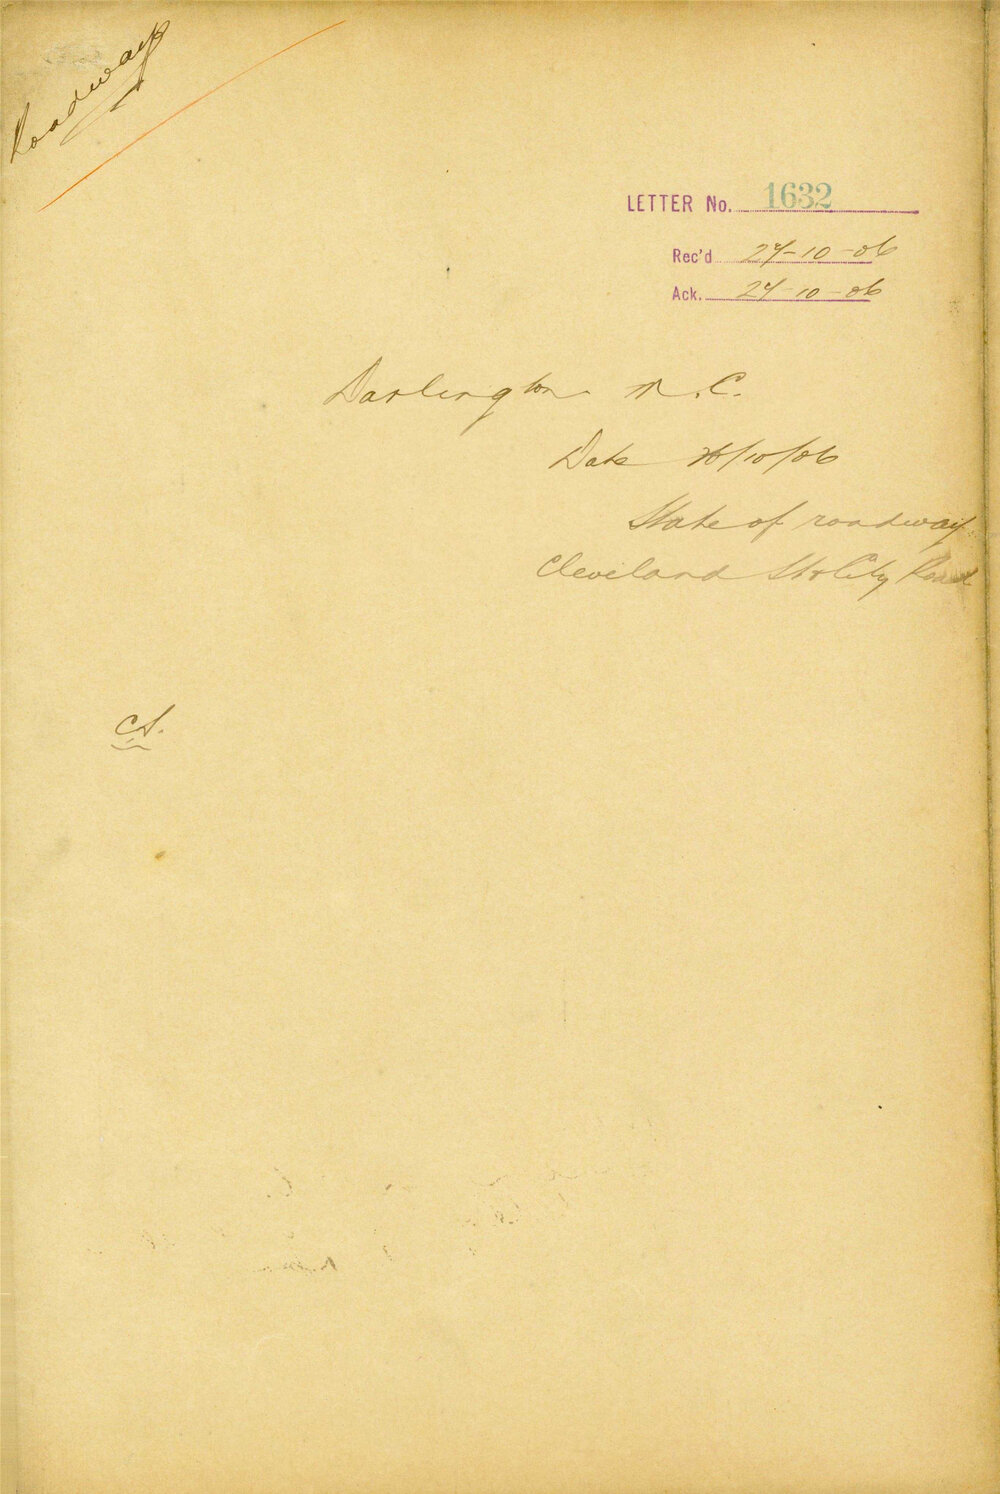 Roadway
LETTER No. 1632
Rec'd 24-10-06
Ack. 24-10-06
Darlington M.C.
Date /10/06
State of roadway
Cleveland St & City Road
CS.